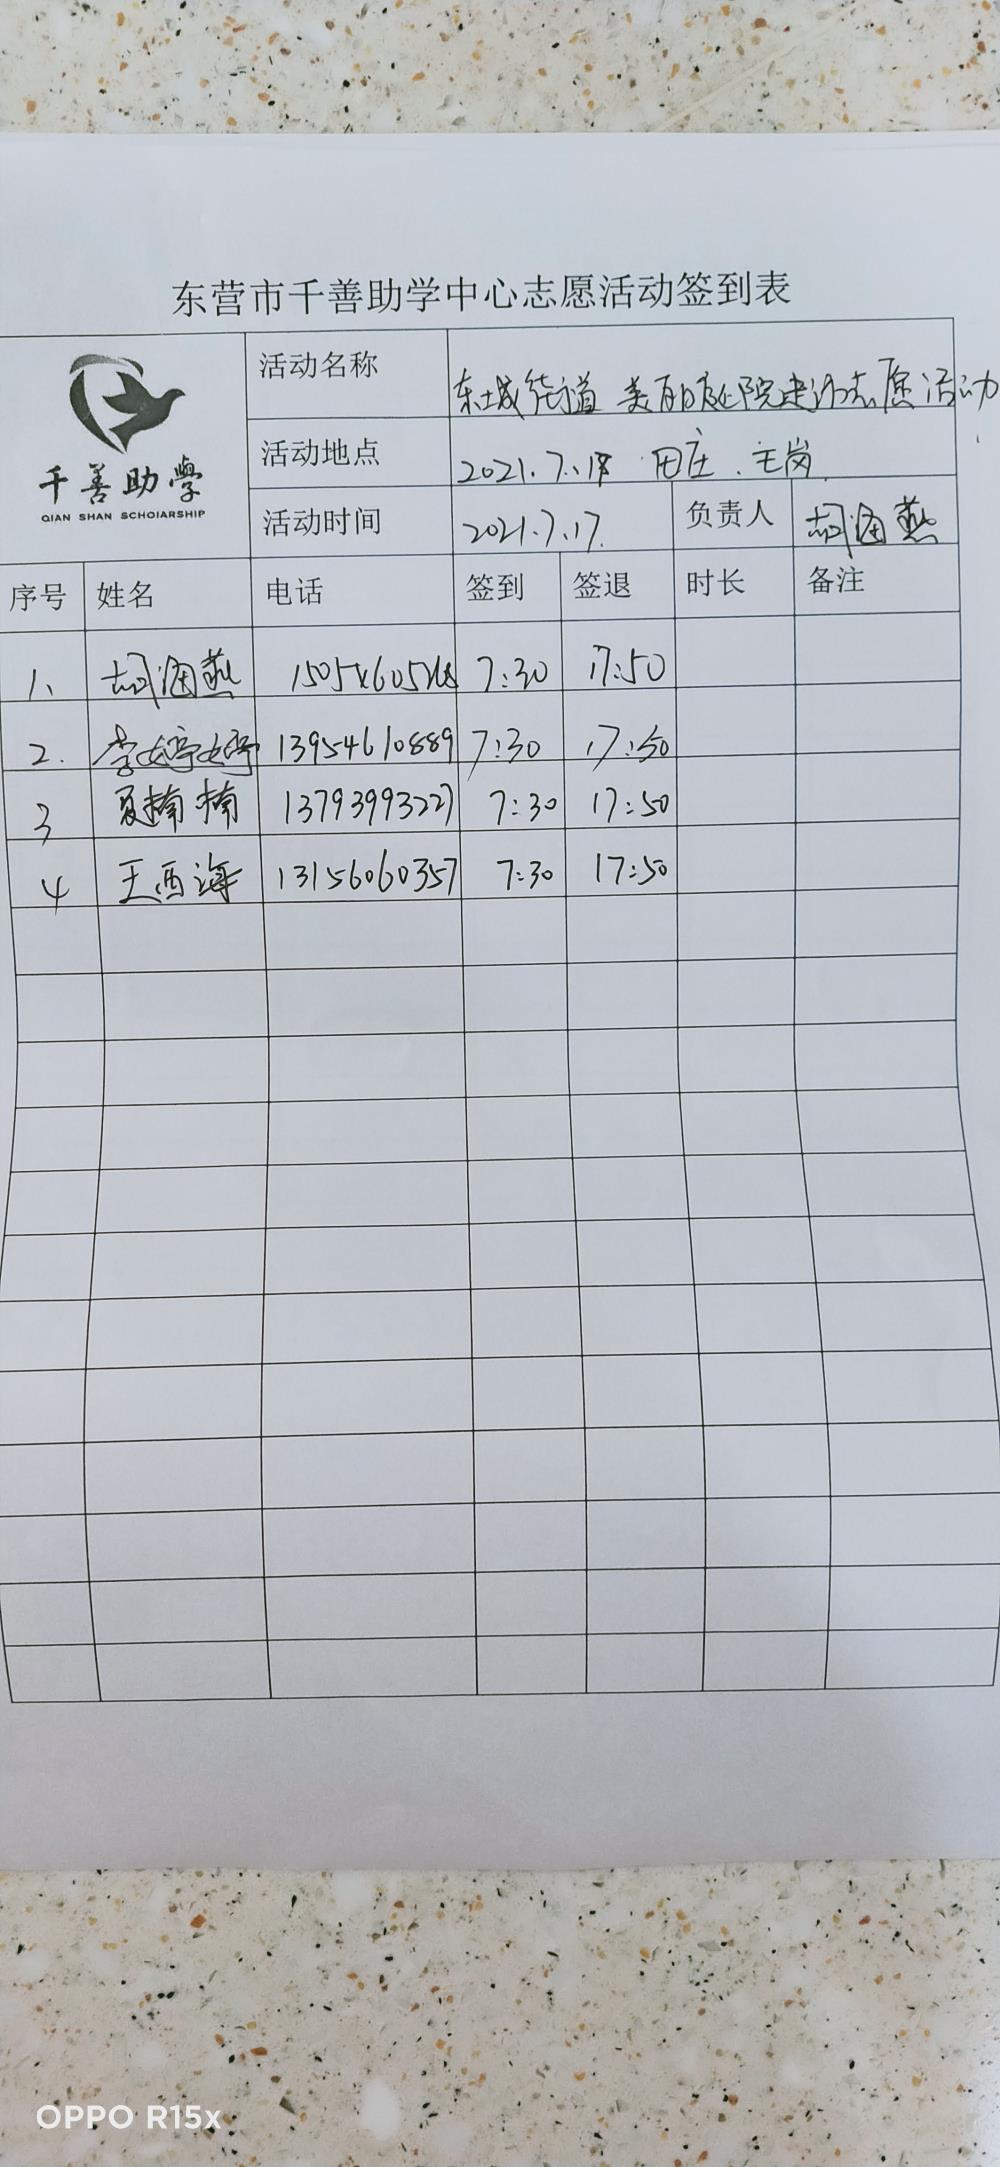 东营市千善助学中心志愿活动签到表
千善助學
QIAN SHAN SCHOIARSHIP
活动名称 东城街道 美丽庭院建设志愿活动
活动地点 2021.7.18 田庄、王岗
活动时间 2021.7.17. 负责人 胡海燕
序号 姓名 电话 签到 签退 时长 备注
1、 胡海燕 7:30 17:50
2. 李婷婷 13954610889 7:30 17:50
3 夏楠楠 13793993227 7:30 17:50
4 王西海 13156060357 7:30 17:50
OPPO R15x